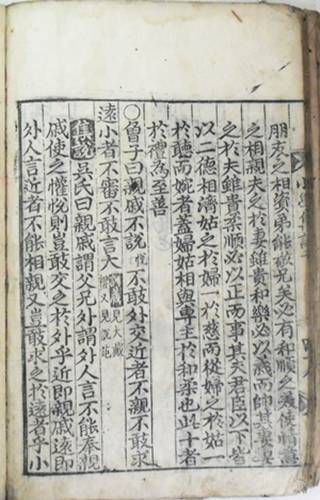 朋友之相資弟能敬兄矣必有和順之美使情意
之相親夫之於妻雖貴和樂必以義而帥其妻妻
之於夫雖貴柔順必以正而事其夫君臣以下皆
以二德相濟姑之於婦一於慈而從婦之於姑一
於聽而婉者蓋婦姑相與專主於和柔也此十者
於禮為至善
○曾子曰親戚不說悅不敢外交近者不親不敢求
遠小者不審不敢言大 見大戴禮又見說苑
集說吳氏曰親戚謂父兄外謂外人言不能奉親
戚使之懽悅則豈敢交之於外乎近即親戚遠即
外人言近者不能相親又豈敢求之於遠者乎小